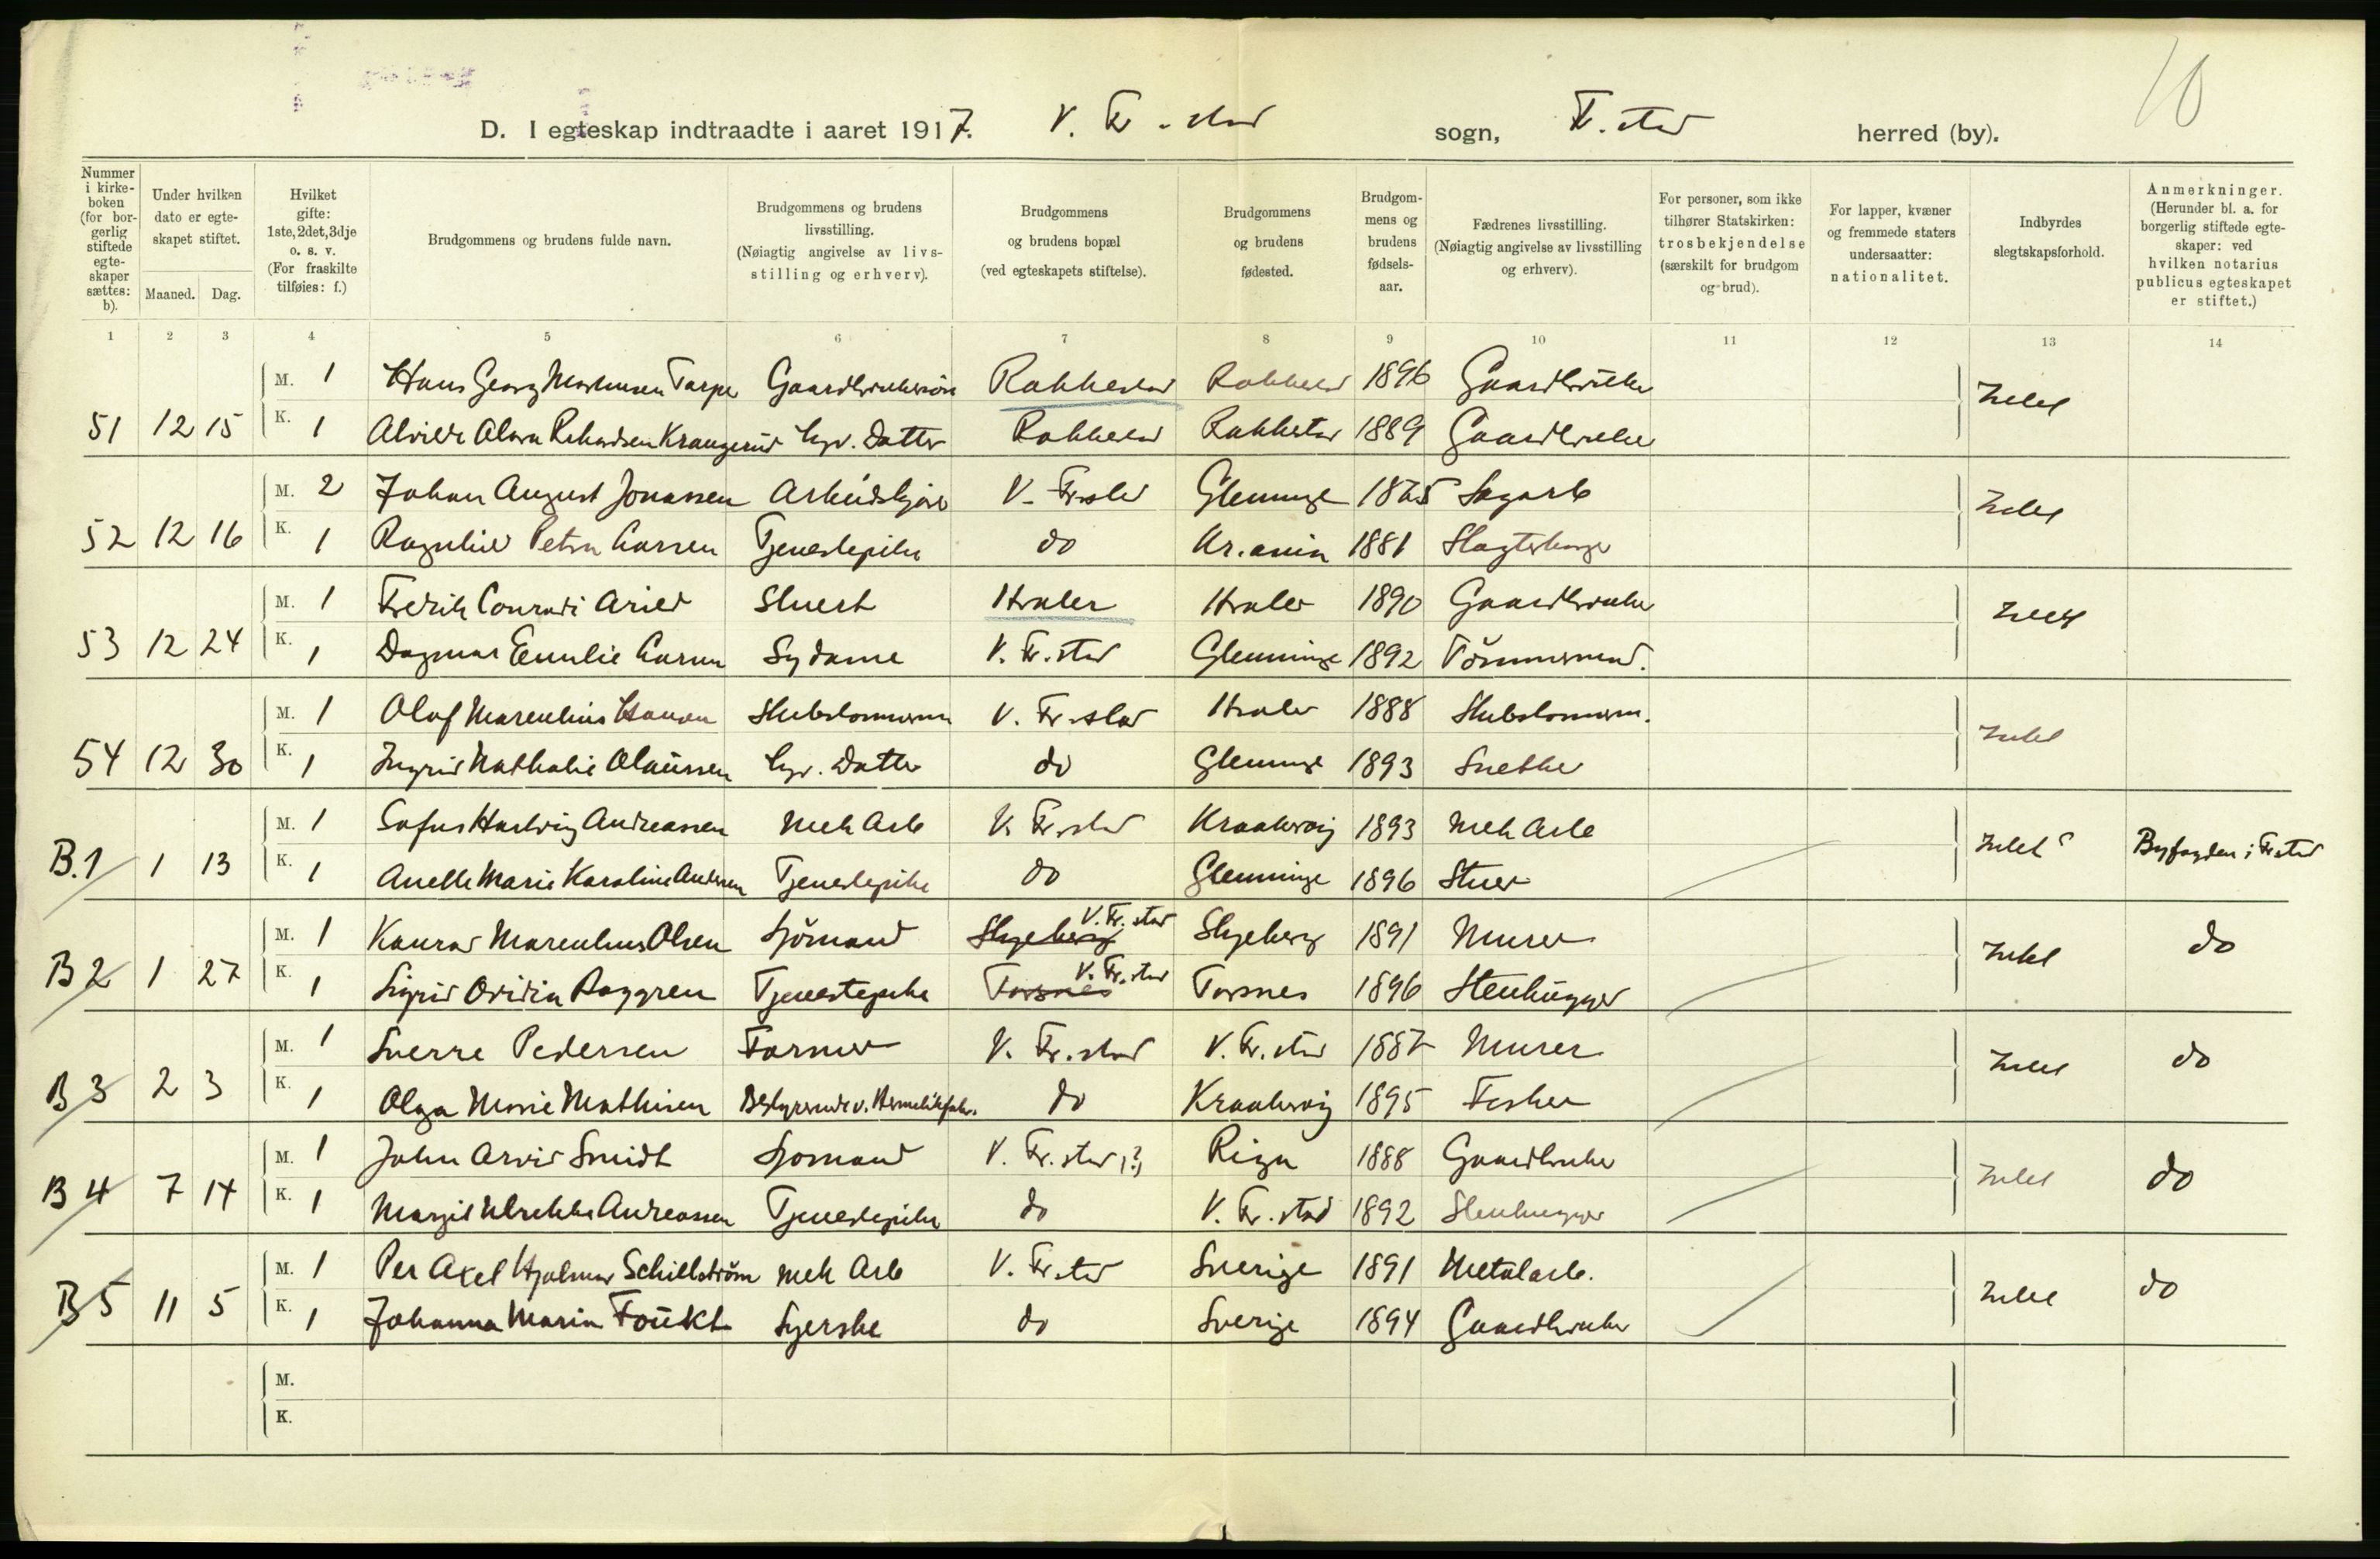 10
D. I egteskap indtraadte i aaret 1917. V. Fr.stad sogn, Fr.stad herred (by).
Nummer i kirke-boken (for bor-gerlig stiftede egte-skaper sættes: b).
Under hvilken dato er egte-skapet stiftet.
Maaned. Dag.
Hvilket gifte: 1ste, 2det, 3dje o. s. v. (For fraskilte tilføies: f.)
Brudgommens og brudens fulde navn.
Brudgommens og brudens livsstilling. (Nøiagtig angivelse av livs-stilling og erhverv).
Brudgommens og brudens bopæl (ved egteskapets stiftelse).
Brudgommens og brudens fødested.
Brudgom-mens og brudens fødsels-aar.
Fædrenes livsstilling. (Nøiagtig angivelse av livsstilling og erhverv).
For personer, som ikke tilhører Statskirken: trosbekjendelse (særskilt for brudgom og brud).
For lapper, kvæner og fremmede staters undersaatter: nationalitet.
Indbyrdes slegtskapsforhold.
Anmerkninger. (Herunder bl. a. for borgerlig stiftede egte-skaper: ved hvilken notarius publicus egteskapet er stiftet.)
1 2 3 4 5 6 7 8 9 10 11 12 13 14
M. 1 Hans Georg Martinsen Tarpe Gaardbrukersøn Rakkestad Rakkestad 1896 Gaardbruker
51 12 15 K. 1 Alvilde Olava Rikardsen Krangerud hjv. Datter Rakkestad Rakkestad 1889 Gaardbruker Intet
M. 2 Johan August Jonassen Arbeidskjører V. Fr.stad Glemminge Sagarb
52 12 16 K. 1 Ragnhild Petra Larsen Tjenestepike do Kr.ania 1881 Intet
M. 1 Fredrik Conradi Arild Stuert Hvaler Hvaler 1890 Gaardbruker
53 12 24 K. 1 Dagmar Emilie Larsen Sydame V. Fr.stad Glemminge 1892 Tömmermand. Intet
M. 1 Olaf Marenius Hansen Skibstømmerm V. Fr.stad Hvaler 1888 Skibstømmerm.
54 12 30 K. 1 Ingrid Nathalie Olaussen hjv. Datter do Glemminge 1893 Snekker Intet
M. 1 Sofus Hartvig Andreassen Mek Arb V. Fr.stad Kraakerøy 1893 Mek Arb
B.1 1 13 K. 1 Anette Marie Karoline Andersen Tjenestepike do Glemminge 1896 Stuer Intet Byfogden i Fr.stad
M. 1 Konrad Marenius Olsen Sjömand Skjeberg V. Fr.stad Skjeberg 1891 Murer
B 2 1 27 K. 1 Sigrid Ovidia Roggren Tjenestepike Torsnes V. Fr.stad Torsnes 1896 Stenhugger Intet do
M. 1 Sverre Pedersen Former V. Fr.stad V. Fr.stad 1887 Murer
B 3 2 3 K. 1 Olga Marie Mathisen Bestyrende v. Hermetikfabr. do Kraakerøy 1895 Fisker Intet do
M. 1 John Arvid Smidt Sjomand V. Fr.stad (?) Riga 1888 Gaardbruker
B 4 7 14 K. 1 Margit Ulrikke Andreassen Tjenestepike do V. Fr.stad 1892 Stenhugger Intet do
M. 1 Per Axel Hjalmar Schillström Mek Arb V. Fr.stad Sverige 1891 Metalarb.
B 5 11 5 K. 1 Johanna Maria Foukt Syerske do Sverige 1894 Gaardbruker Intet do
M.
K.